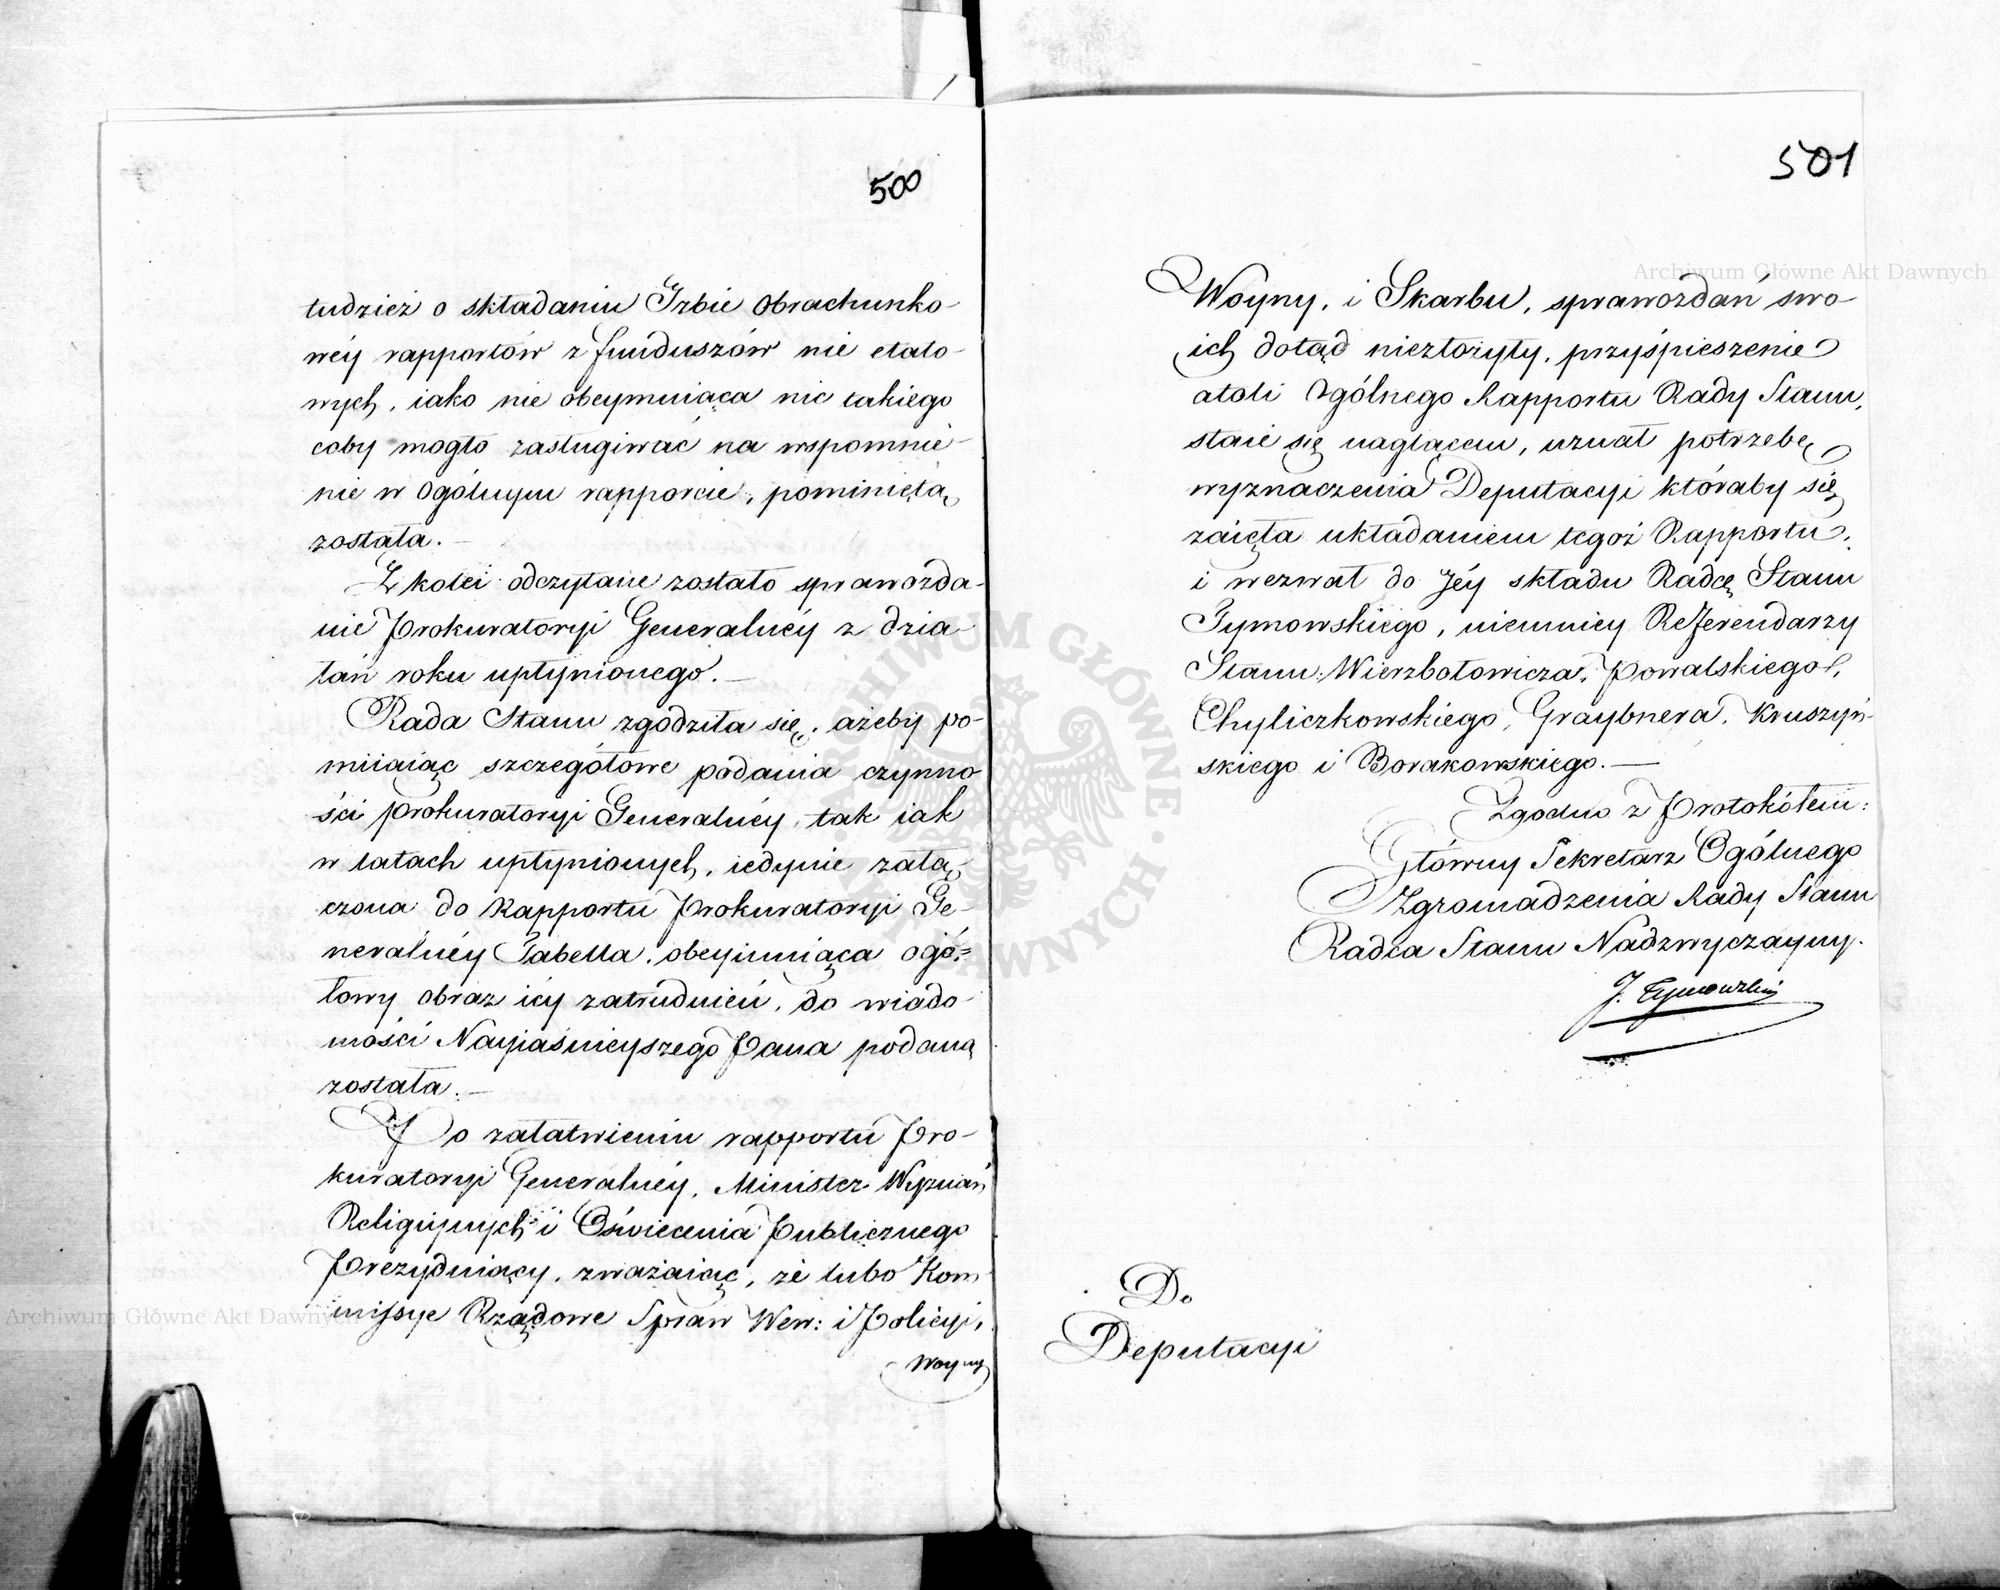 500
tudzież o składaniu Izbie Obrachunko-
wéy rapportów z funduszów nie etato-
wych, iako nie obeymuiąca nic takiego
coby mogło zasługiwać na wspomnie-
nie w Ogólnym rapporcie, pominiętą
została.—
Z kolei odczytane zostało sprawozda-
nie Prokuratoryi Generalnéy z dzia-
łań roku upłynionego.—
Rada Stanu zgodziła się, ażeby po-
miiaiąc szczegółowe podania czynno-
ści Prokuratoryi Generalnéy, tak iak
w latach upłynionych, iedynie załą-
czona do Rapportu Prokuratoryi Ge-
neralnéy Tabella, obeymuiąca ogó-
łowy obraz iéy zatrudnień, do wiado-
mości Nayiaśnieyszego Pana podaną
została.—
Po załatwieniu rapportu Pro-
kuratoryi Generalnéy, Minister Wyznań
Religiynych i Oświecenia Publicznego
Prezyduiący, zważaiąc, że lubo Kom-
missye Rządowe Spraw Wew: i Policyi,
Woyny
501
Woyny, i Skarbu, sprawozdań swo-
ich dotąd niezłożyły, przyśpieszenie
atoli Ogólnego Rapportu Rady Stanu,
staie się naglącem, uznał potrzebę
wyznaczenia Deputacyi któraby się
zaięła układaniem tegoż Rapportu,
i wezwał do Jéy składu Radcę Stanu
Tymowskiego, niemniey Referendarzy
Stanu: Wierzbołowicza, Powalskiego,
Chyliczkowskiego, Graybnera, Kruszyń-
skiego i Borakowskiego.—
Zgodno z Protokółem:
Główny Sekretarz Ogólnego
Zgromadzenia Rady Stanu
Radca Stanu Nadzwyczayny.
J. Tymowski
Do
Deputacyi
Archiwum Główne Akt Dawnych
Archiwum Główne Akt Dawnych
ARCHIWUM GŁÓWNE AKT DAWNYCH